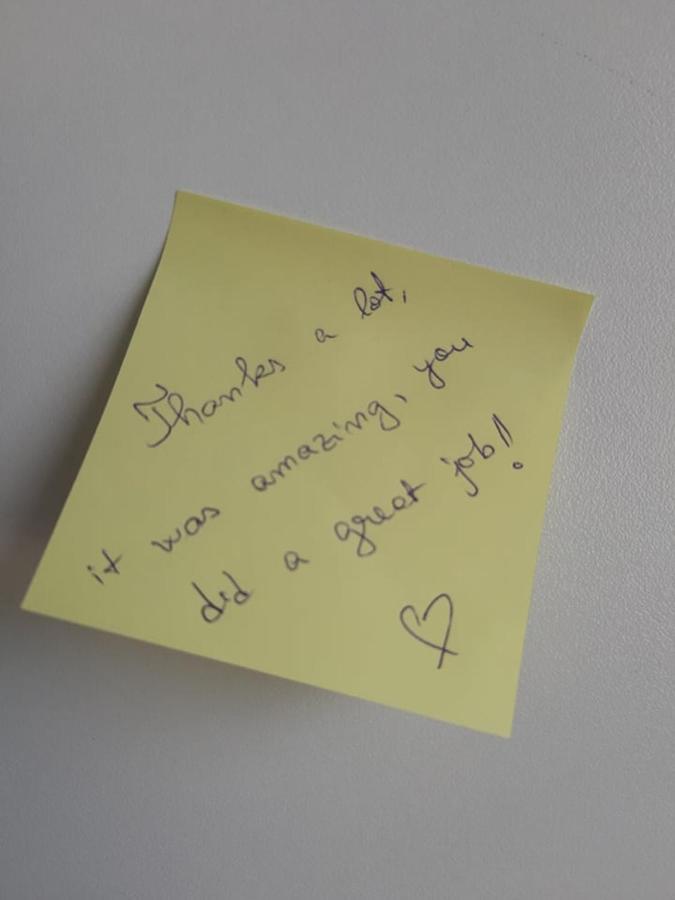 Thanks a lot,
it was amazing, you
did a great job!